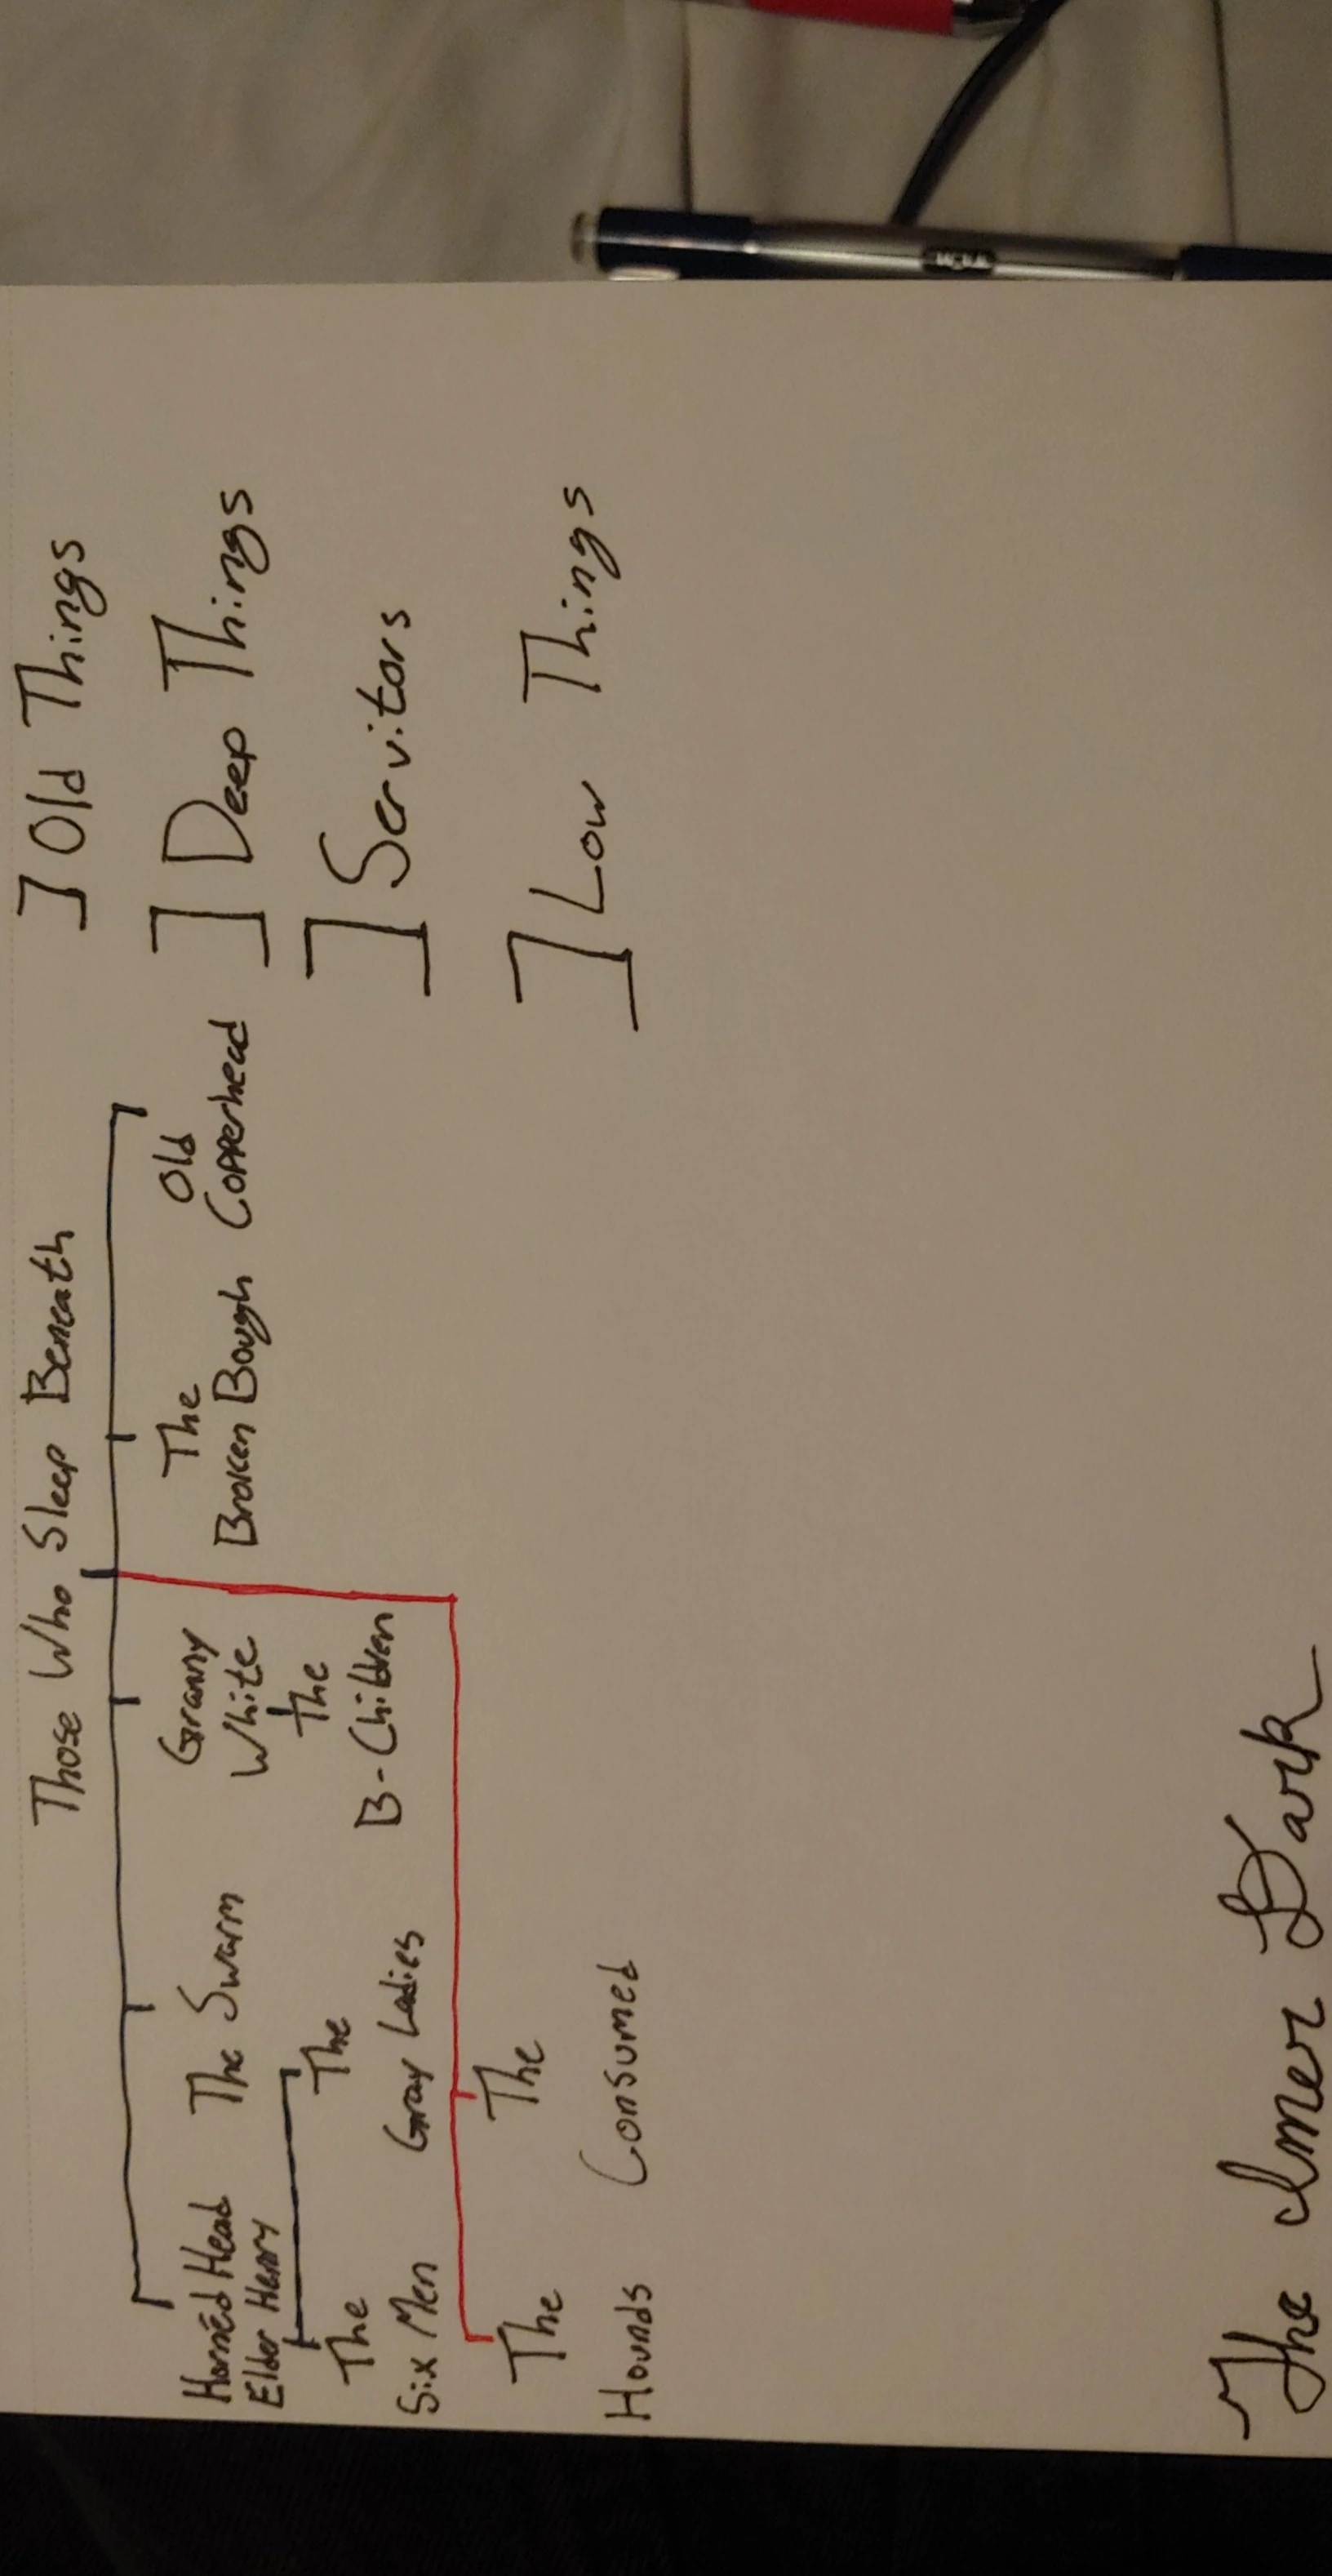 Those Who Sleep Beneath ] Old Things
Horned Head The Swarm Granny The Old ] Deep Things
Elder Henry White Broken Bough Copperhead
The The The ] Servitors
Six Men Gray Ladies B-Children
The The ] Low Things
Hounds Consumed
The Inner Dark